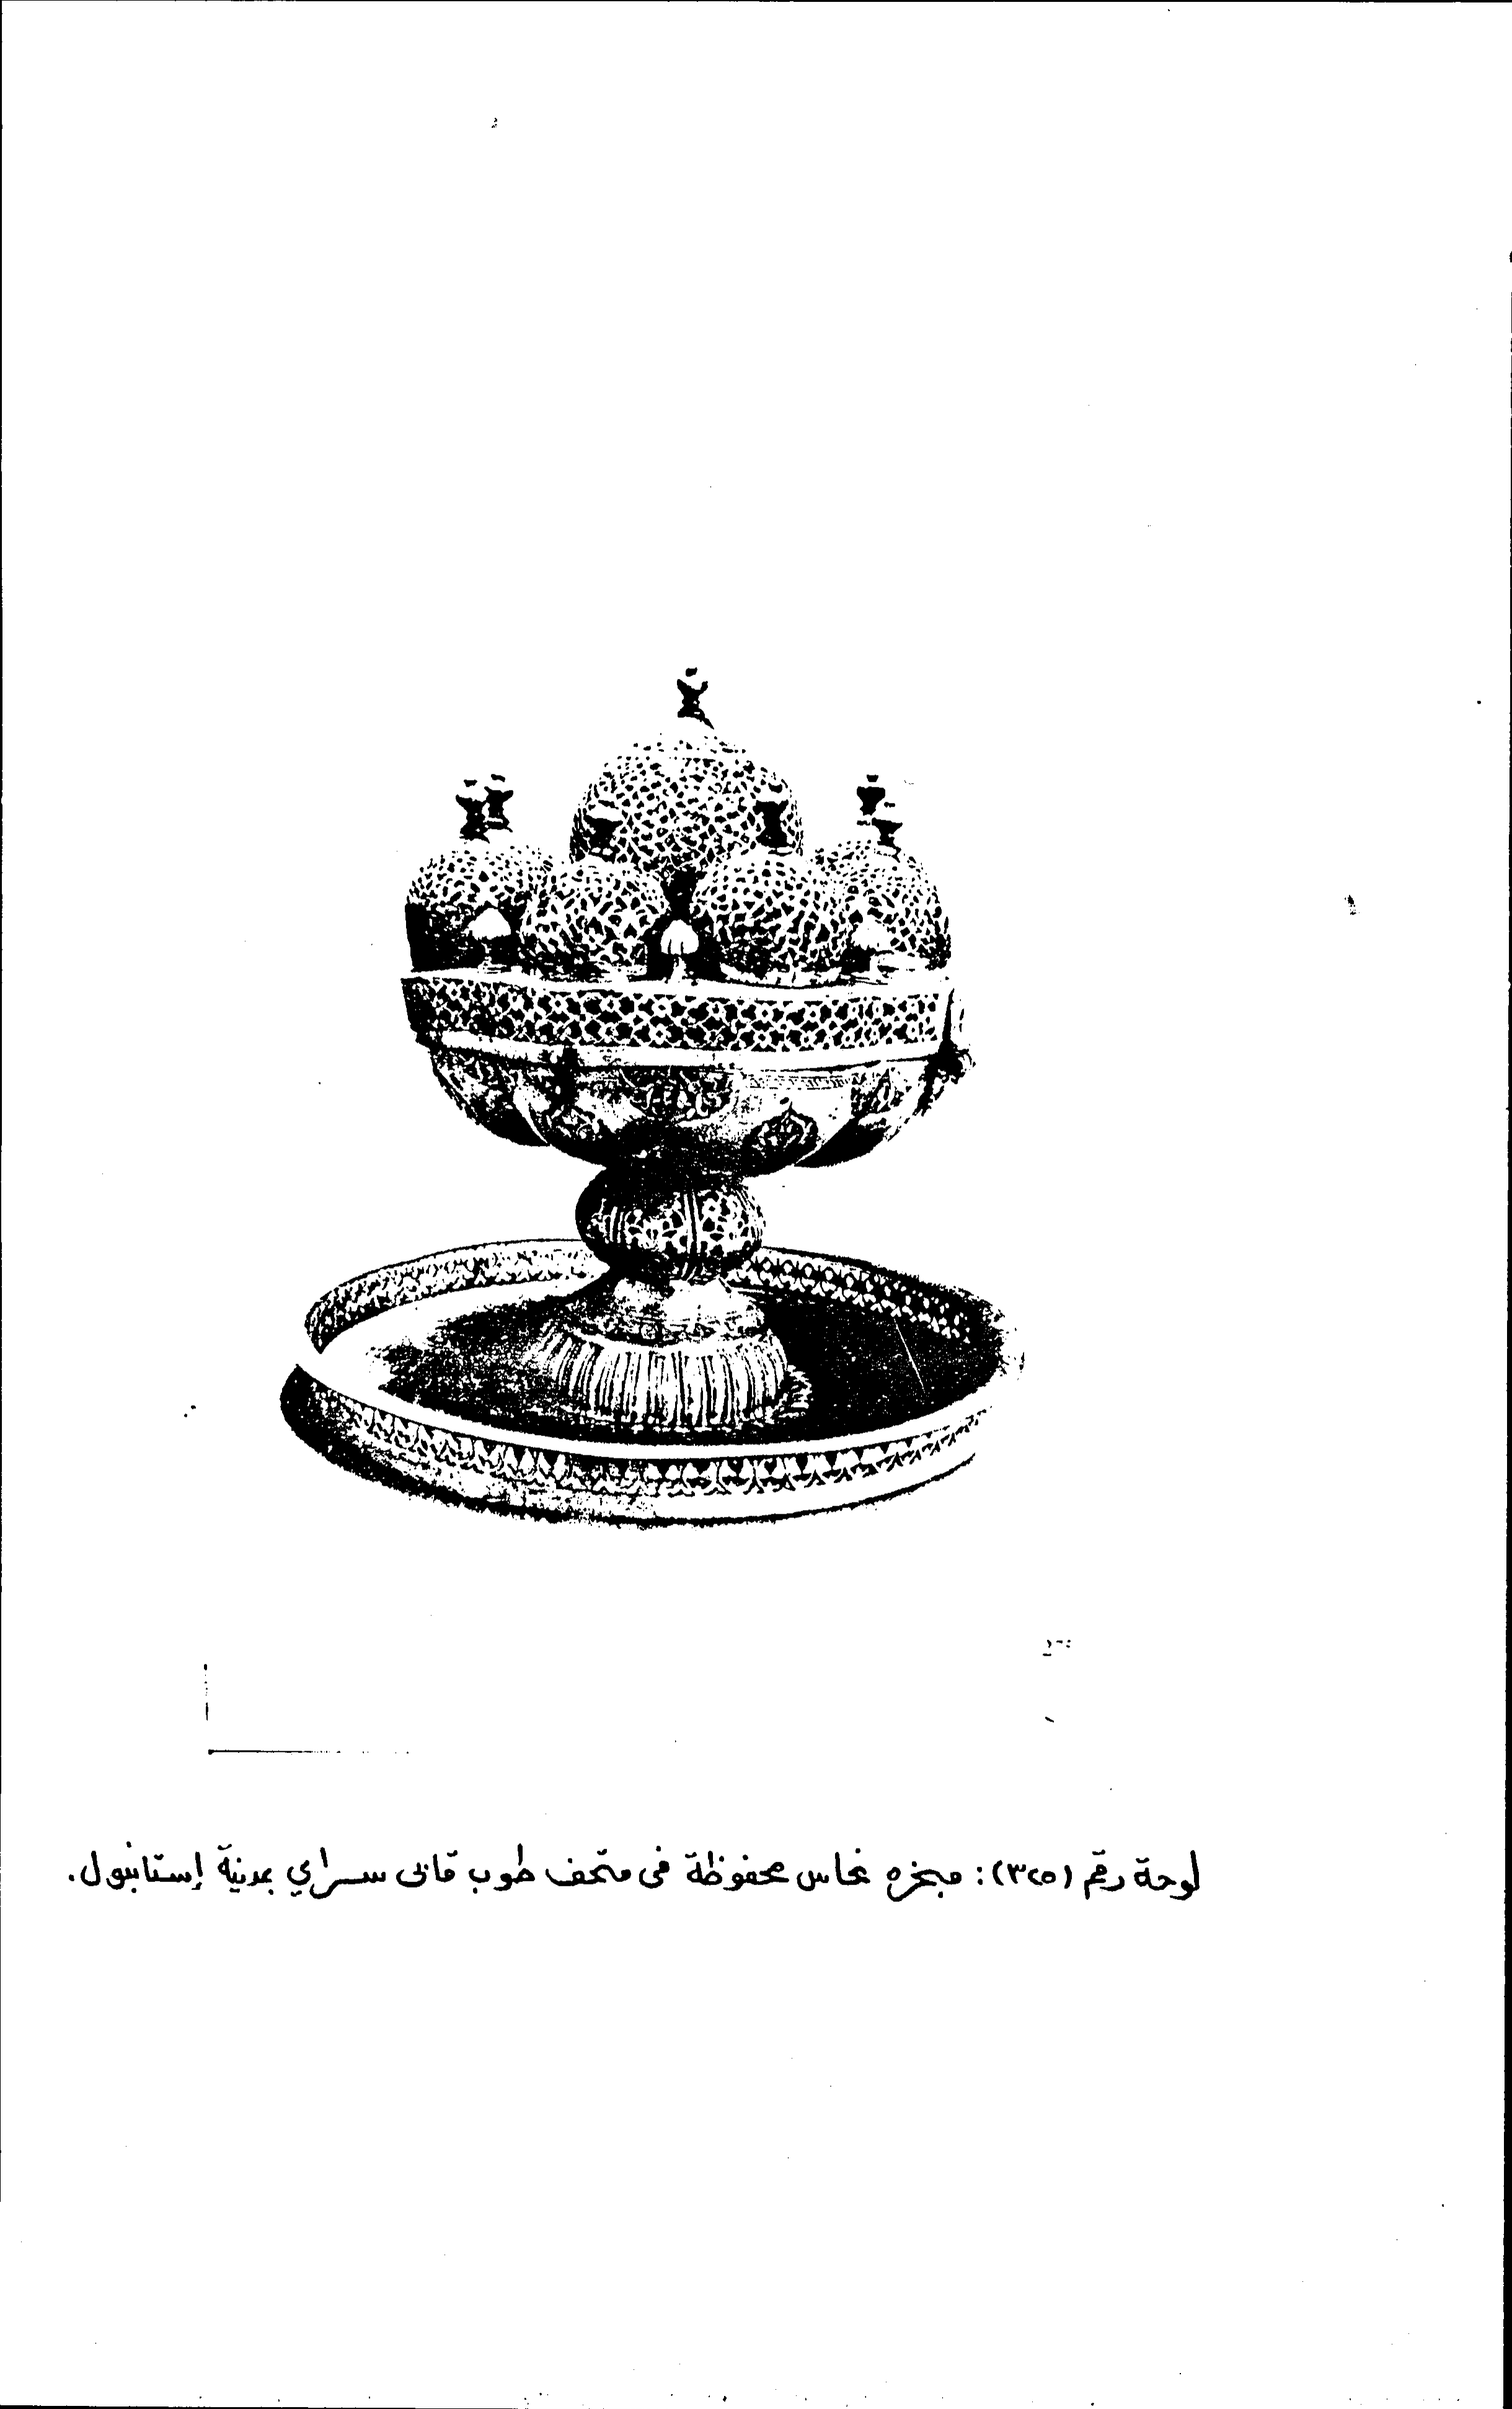 لوحة رقم (٣٢٥): مبخره نحاس محفوظة فى متحف طوب قابى سراي بمدينة إستانبول.